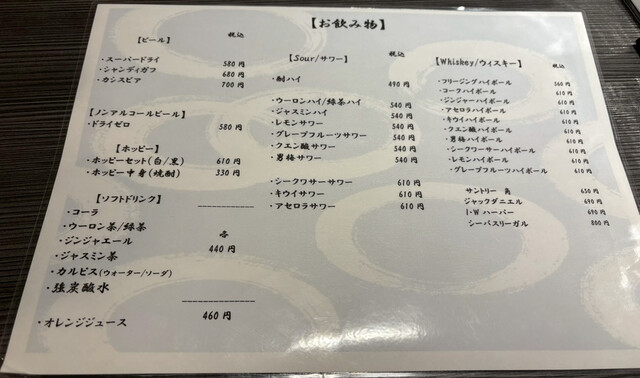 【お飲み物】
【ビール】 税込
・スーパードライ 580 円
・シャンディガフ 680 円
・カシスビア 700 円
【ノンアルコールビール】
・ドライゼロ 580 円
【ホッピー】
・ホッピーセット(白/黒) 610 円
・ホッピー中身(焼酎) 330 円
【ソフトドリンク】
・コーラ
・ウーロン茶/緑茶
・ジンジャエール
・ジャスミン茶
・カルピス(ウォーター/ソーダ)
・強炭酸水
各
440 円
・オレンジジュース 460 円
【Sour/サワー】 税込
・酎ハイ 490 円
・ウーロンハイ/緑茶ハイ 540 円
・ジャスミンハイ 540 円
・レモンサワー 540 円
・グレープフルーツサワー 540 円
・クエン酸サワー 540 円
・男梅サワー 540 円
・シークワサーサワー 610 円
・キウイサワー 610 円
・アセロラサワー 610 円
【Whiskey/ウィスキー】 税込
・フリージングハイボール 560 円
・コークハイボール 610 円
・ジンジャーハイボール 610 円
・アセロラハイボール 610 円
・キウイハイボール 610 円
・クエン酸ハイボール 610 円
・男梅ハイボール 610 円
・シークワーサーハイボール 610 円
・レモンハイボール 610 円
・グレープフルーツハイボール 610 円
サントリー 角 650 円
ジャックダニエル 690 円
I・Wハーパー 690 円
シーバスリーガル 800 円